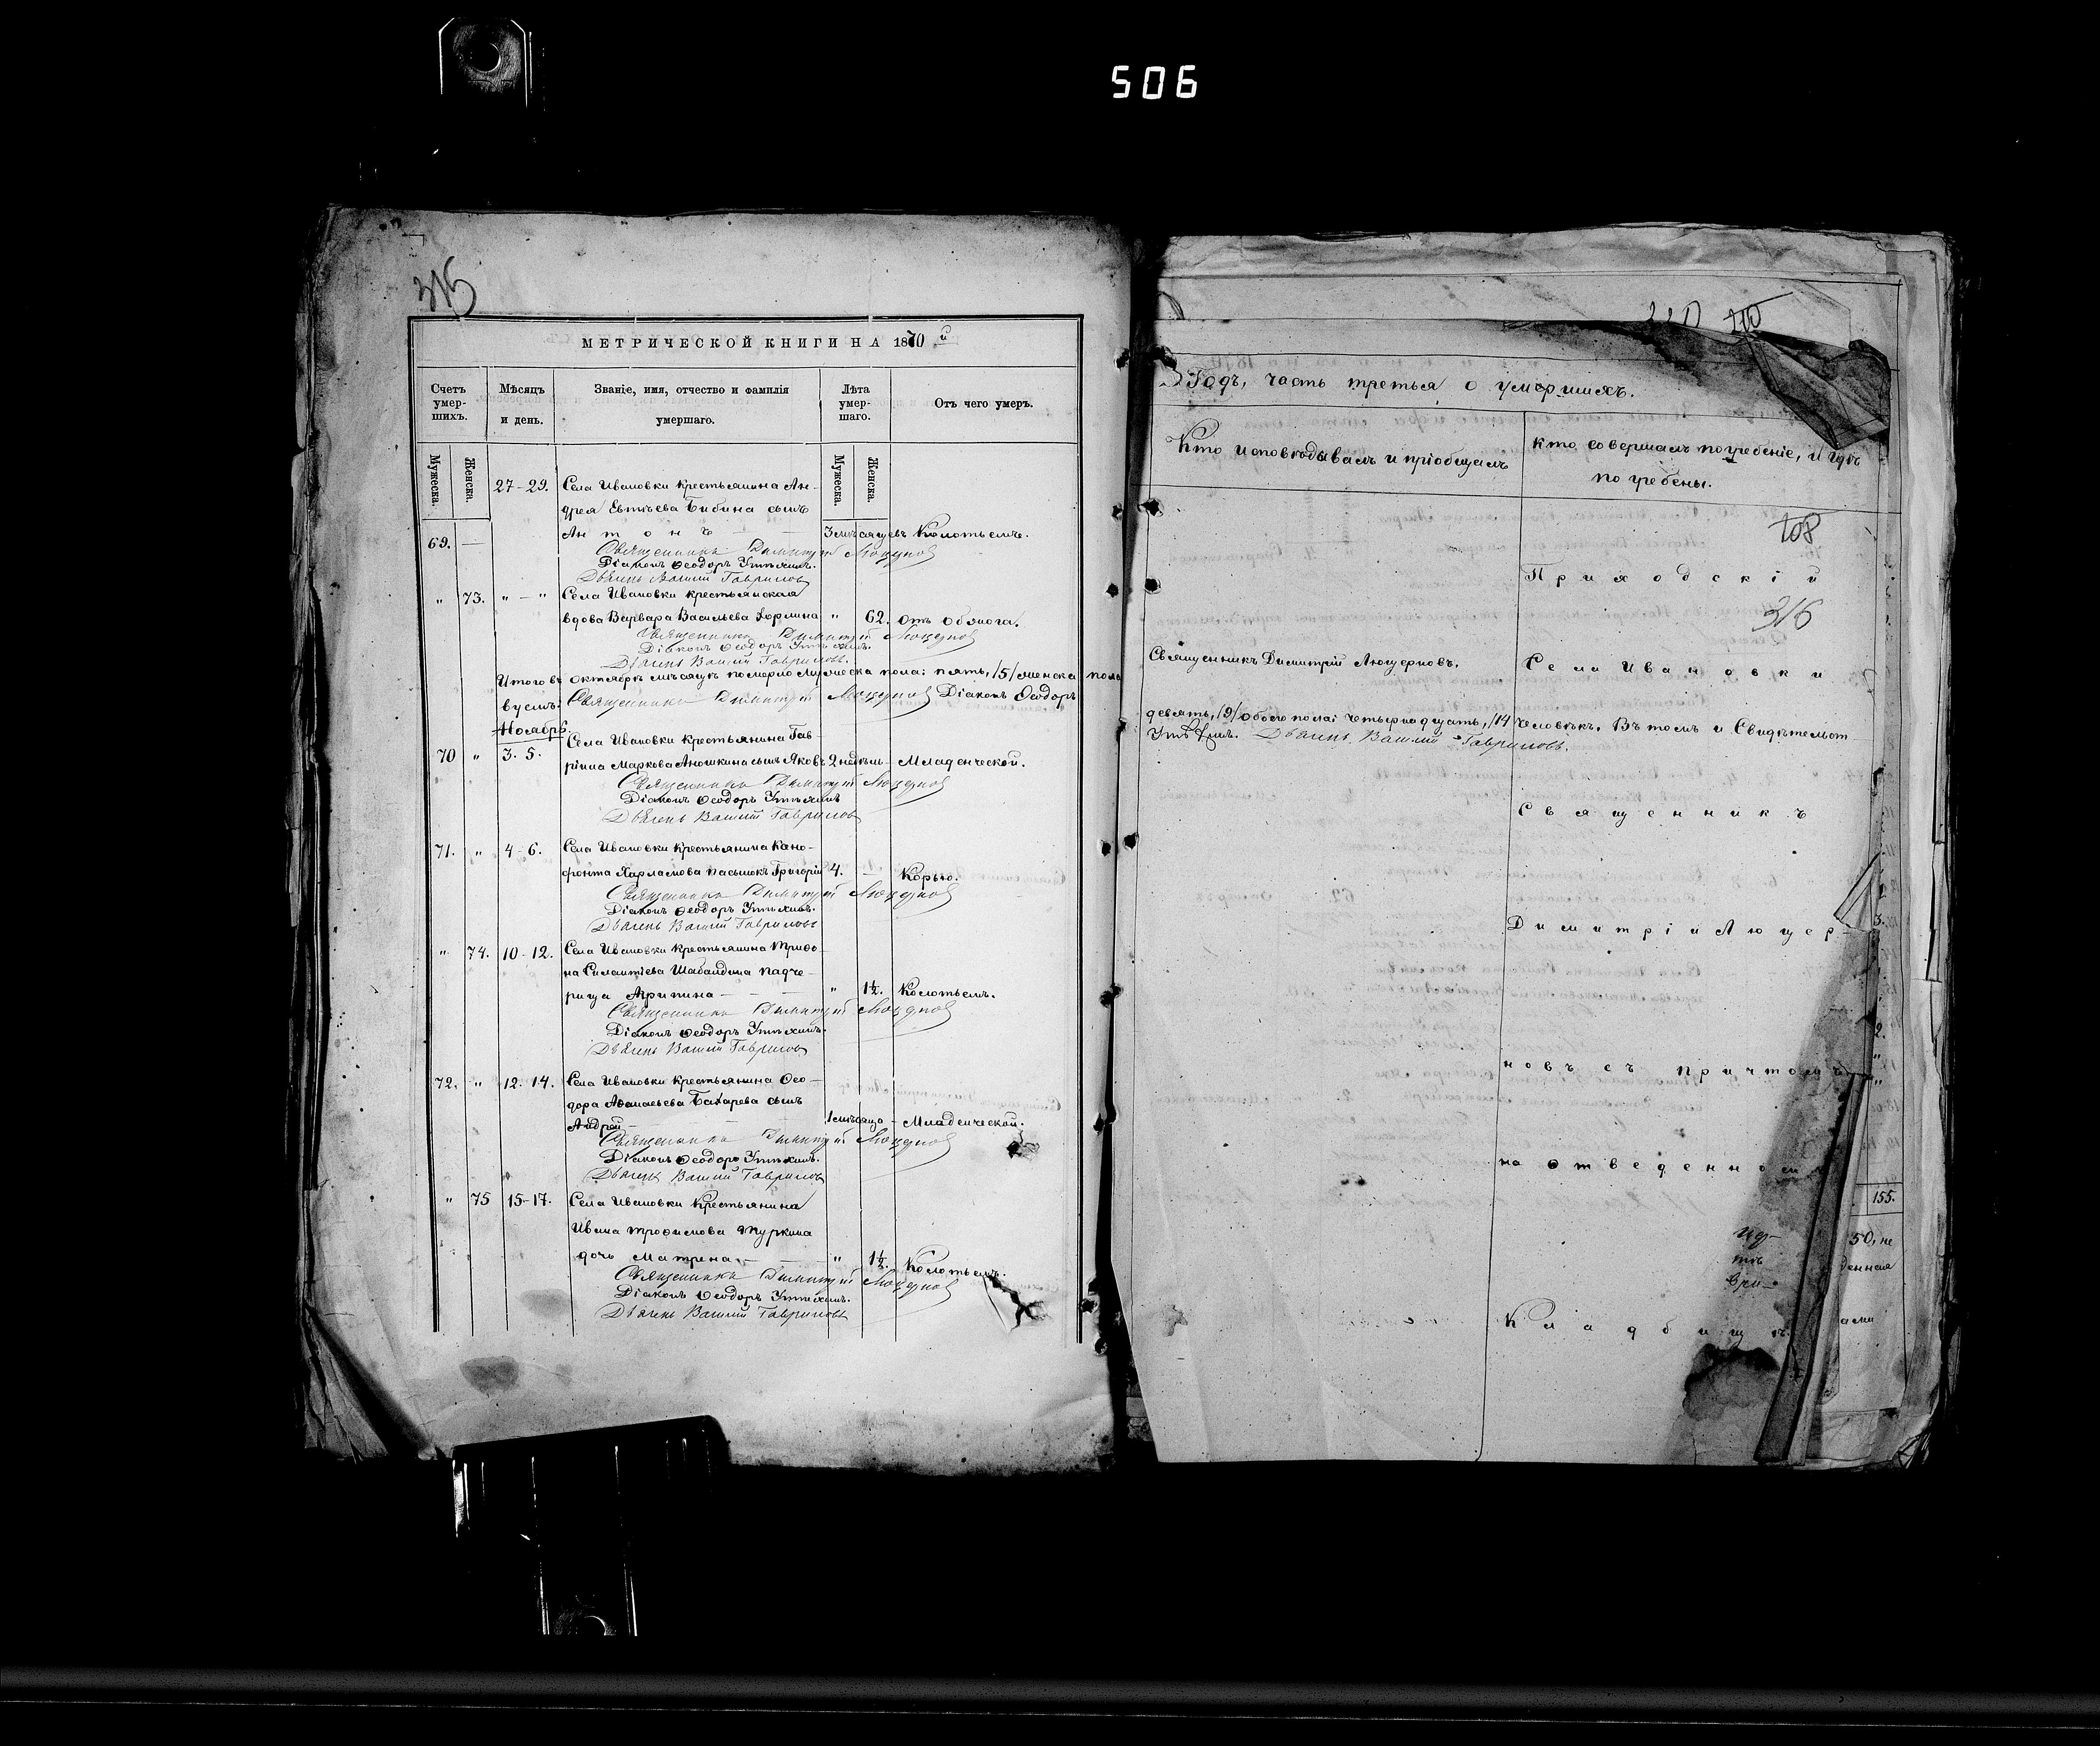 506
316
МЕТРИЧЕСКОЙ КНИГИ НА 1870й
Счетъ умер-шихъ.
Мѣсяцъ и день.
Званіе, имя, отчество и фамилія умершаго.
Лѣта умер-шаго.
Отъ чего умеръ.
Мужеска.
Женска.
Мужеска.
Женска.
27-29. Села Ивановки крестьянина Ан-
дрея Евтѣева Бибина сынъ
69. — Антонъ — 3 мѣсяцевъ Колотьемъ.
Священникъ Димитрій Люцерновъ
Діаконъ Ѳеодоръ Утѣхинъ.
Дьячекъ Василій Гавриловъ
„ 73. „ — „ Села Ивановки крестьянская
вдова Варвара Васильева „ 62. отъ
Священникъ Димитрій Люцерновъ
Діаконъ Ѳеодоръ Утѣхинъ.
Дьячекъ Василій Гавриловъ.
Итого въ октябрѣ мѣсяцѣ померло мужеска пола: пять, /5/ женска пола
вуемъ: Священникъ Димитрій Люцерновъ Діаконъ Ѳеодоръ
Ноябрь.
70 „ 3. 5. Села Ивановки крестьянина Гав-
ріила Маркова Аношкина сынъ Яковъ 2 недѣль — Младенческой.
Священникъ Димитрій Люцерновъ
Діаконъ Ѳеодоръ Утѣхинъ
Дьячекъ Василій Гавриловъ
71. „ 4-6. Села Ивановки крестьянина
Харламова пасынокъ Григорій 4. — Корью.
Священникъ Димитрій Люцерновъ
Діаконъ Ѳеодоръ Утѣхинъ.
Дьячекъ Василій Гавриловъ
„ 74. 10-12. Села Ивановки крестьянина Трифо-
на Шабалдина падче-
рица Агрипина — „ 1½. Колотьемъ.
Священникъ Димитрій Люцерновъ
Діаконъ Ѳеодоръ Утѣхинъ.
Дьячекъ Василій Гавриловъ
72. „ 12. 14. Села Ивановки крестьянина Ѳео-
дора Аѳанасьева Бахарева сынъ
Андрей — 1 мѣсяца — Младенческой.
Священникъ Димитрій Люцерновъ
Діаконъ Ѳеодоръ Утѣхинъ.
Дьячекъ Василій Гавриловъ
„ 75 15-17. Села Ивановки Крестьянина
Ивана Трофимова
дочь Матрена — „ 1½. Колотьемъ.
Священникъ Димитрій Люцерновъ
Діаконъ Ѳеодоръ Утѣхинъ.
Дьячекъ Василій Гавриловъ
210
Годъ, часть третья о умершихъ.
Кто исповѣдывалъ и пріобщалъ
Кто совершалъ погребеніе, и гдѣ
погребены.
108
Приходскій
316
Священникъ Димитрій Люцерновъ.
Села Ивановки
девять, /9/ обоего пола: четырнадцать, /14 человѣкъ. Въ томъ и Свидѣтельст-
Утѣхинъ. Дьячекъ Василій Гавриловъ.
Священникъ
Димитрій Люцер-
новъ съ причтомъ
на отведенномъ
155.
50, не
денная
Кладбищѣ.
ами